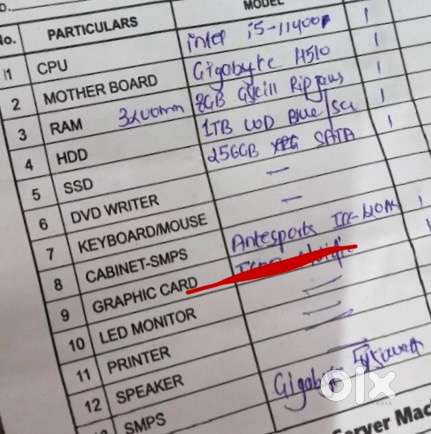 D.
No. PARTICULARS MODEL
1 CPU intel i5-11400F 1
2 MOTHER BOARD Gigabyte H510 1
3 RAM 3200mm 8GB Gskill Ripjaws 1
4 HDD 1TB WD Blue 1
5 SSD 256GB SATA 1
6 DVD WRITER —
7 KEYBOARD/MOUSE —
8 CABINET-SMPS Antesports 1
9 GRAPHIC CARD
10 LED MONITOR
11 PRINTER
12 SPEAKER
13 SMPS Gigabyte
Server Mac
olx